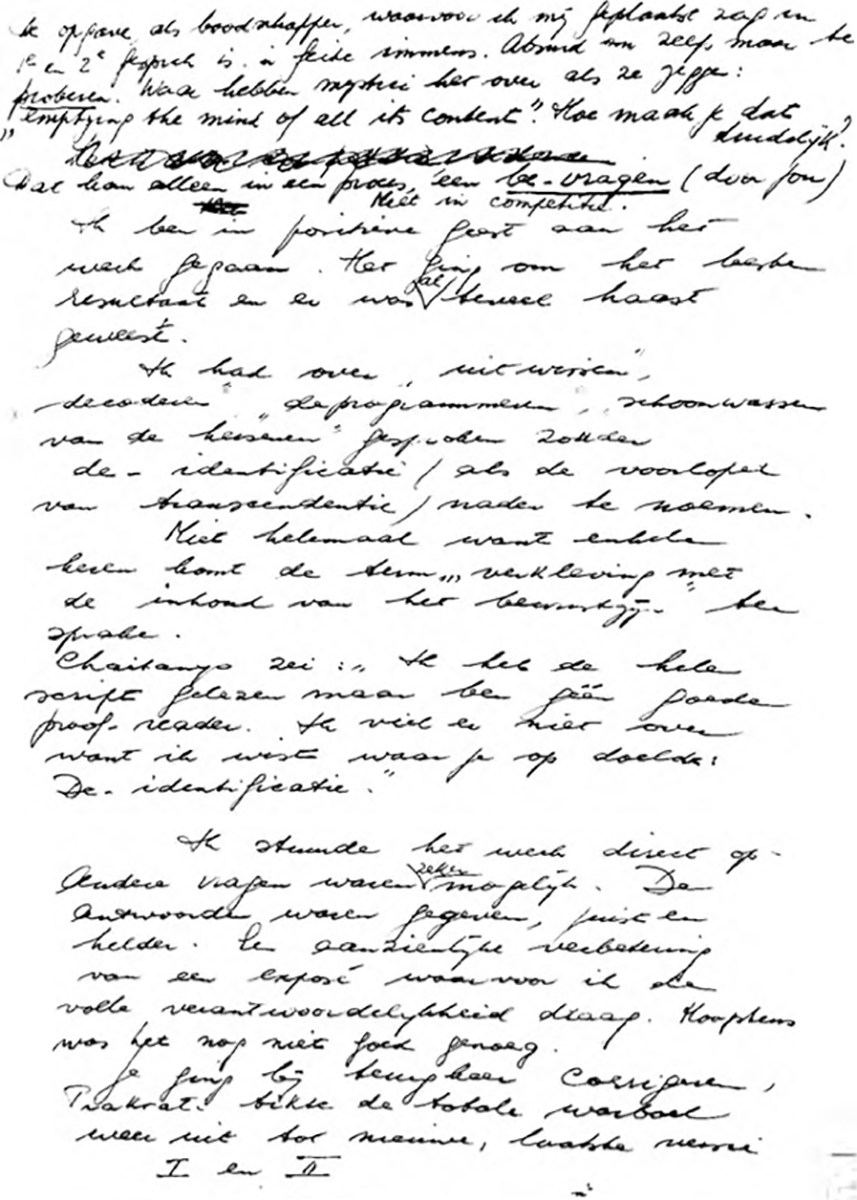 De opgave als boodschapper, waarvoor ik mij geplaatst zag in
1e en 2e gesprek is in feite immens. Absurd om zelfs maar te
proberen. Waar hebben mystici het over als ze zeggen:
"emptying the mind of all its content". Hoe maak je dat
duidelijk?
Dat kan alleen in een proces, een be-vragen (door jou)
Niet in competitie.
Ik ben in positieve geest aan het
werk gegaan. Het ging om het beste
resultaat en er was al teveel haast
geweest.
Ik had over "uitwissen",
decoderen" "deprogrammeren, "schoonwassen
van de hersenen" gesproken zonder
de-identificatie (als de voorloper
van transcendentie) nader te noemen.
Niet helemaal want enkele
keren komt de term "verkleving met
de inhoud van het bewustzijn" ter
sprake.
Chaitanya zei: "Ik heb de hele
script gelezen maar ben géén goede
proof-reader. Ik viel er niet over
want ik wist waar je op doelde:
De-identificatie."
Ik stuurde het werk direct op.
Andere vragen waren zeker mogelijk. De
antwoorden waren gegeven, juist en
helder. Een aanzienlijke verbetering
van een exposé waarvoor ik de
volle verantwoordelijkheid draag. Hoogstens
was het nog niet goed genoeg.
Je ging bij terugkeer corrigeren,
Prakrat. tikte de totale warboel
weer uit tot nieuwe, laatste versie
I en II